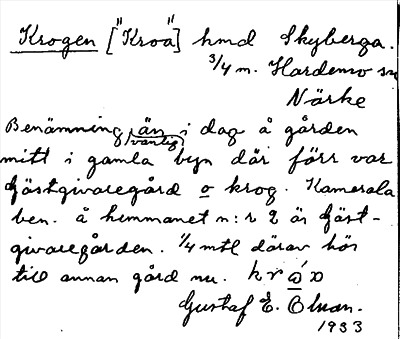 Krogen ["Kroä"] hmd Skyberga.
3/4 m. Hardemo sn
Närke
Benämning än i dag å gården
(vanlig)
mitt i gamla byn där förr var
gästgivaregård o krog. Kamerala
ben. å hemmanet n:r 2 är gäst-
givaregården. 1/4 mtl därav hör
till annan gård nu.
Gustaf E. Olsson.
1933